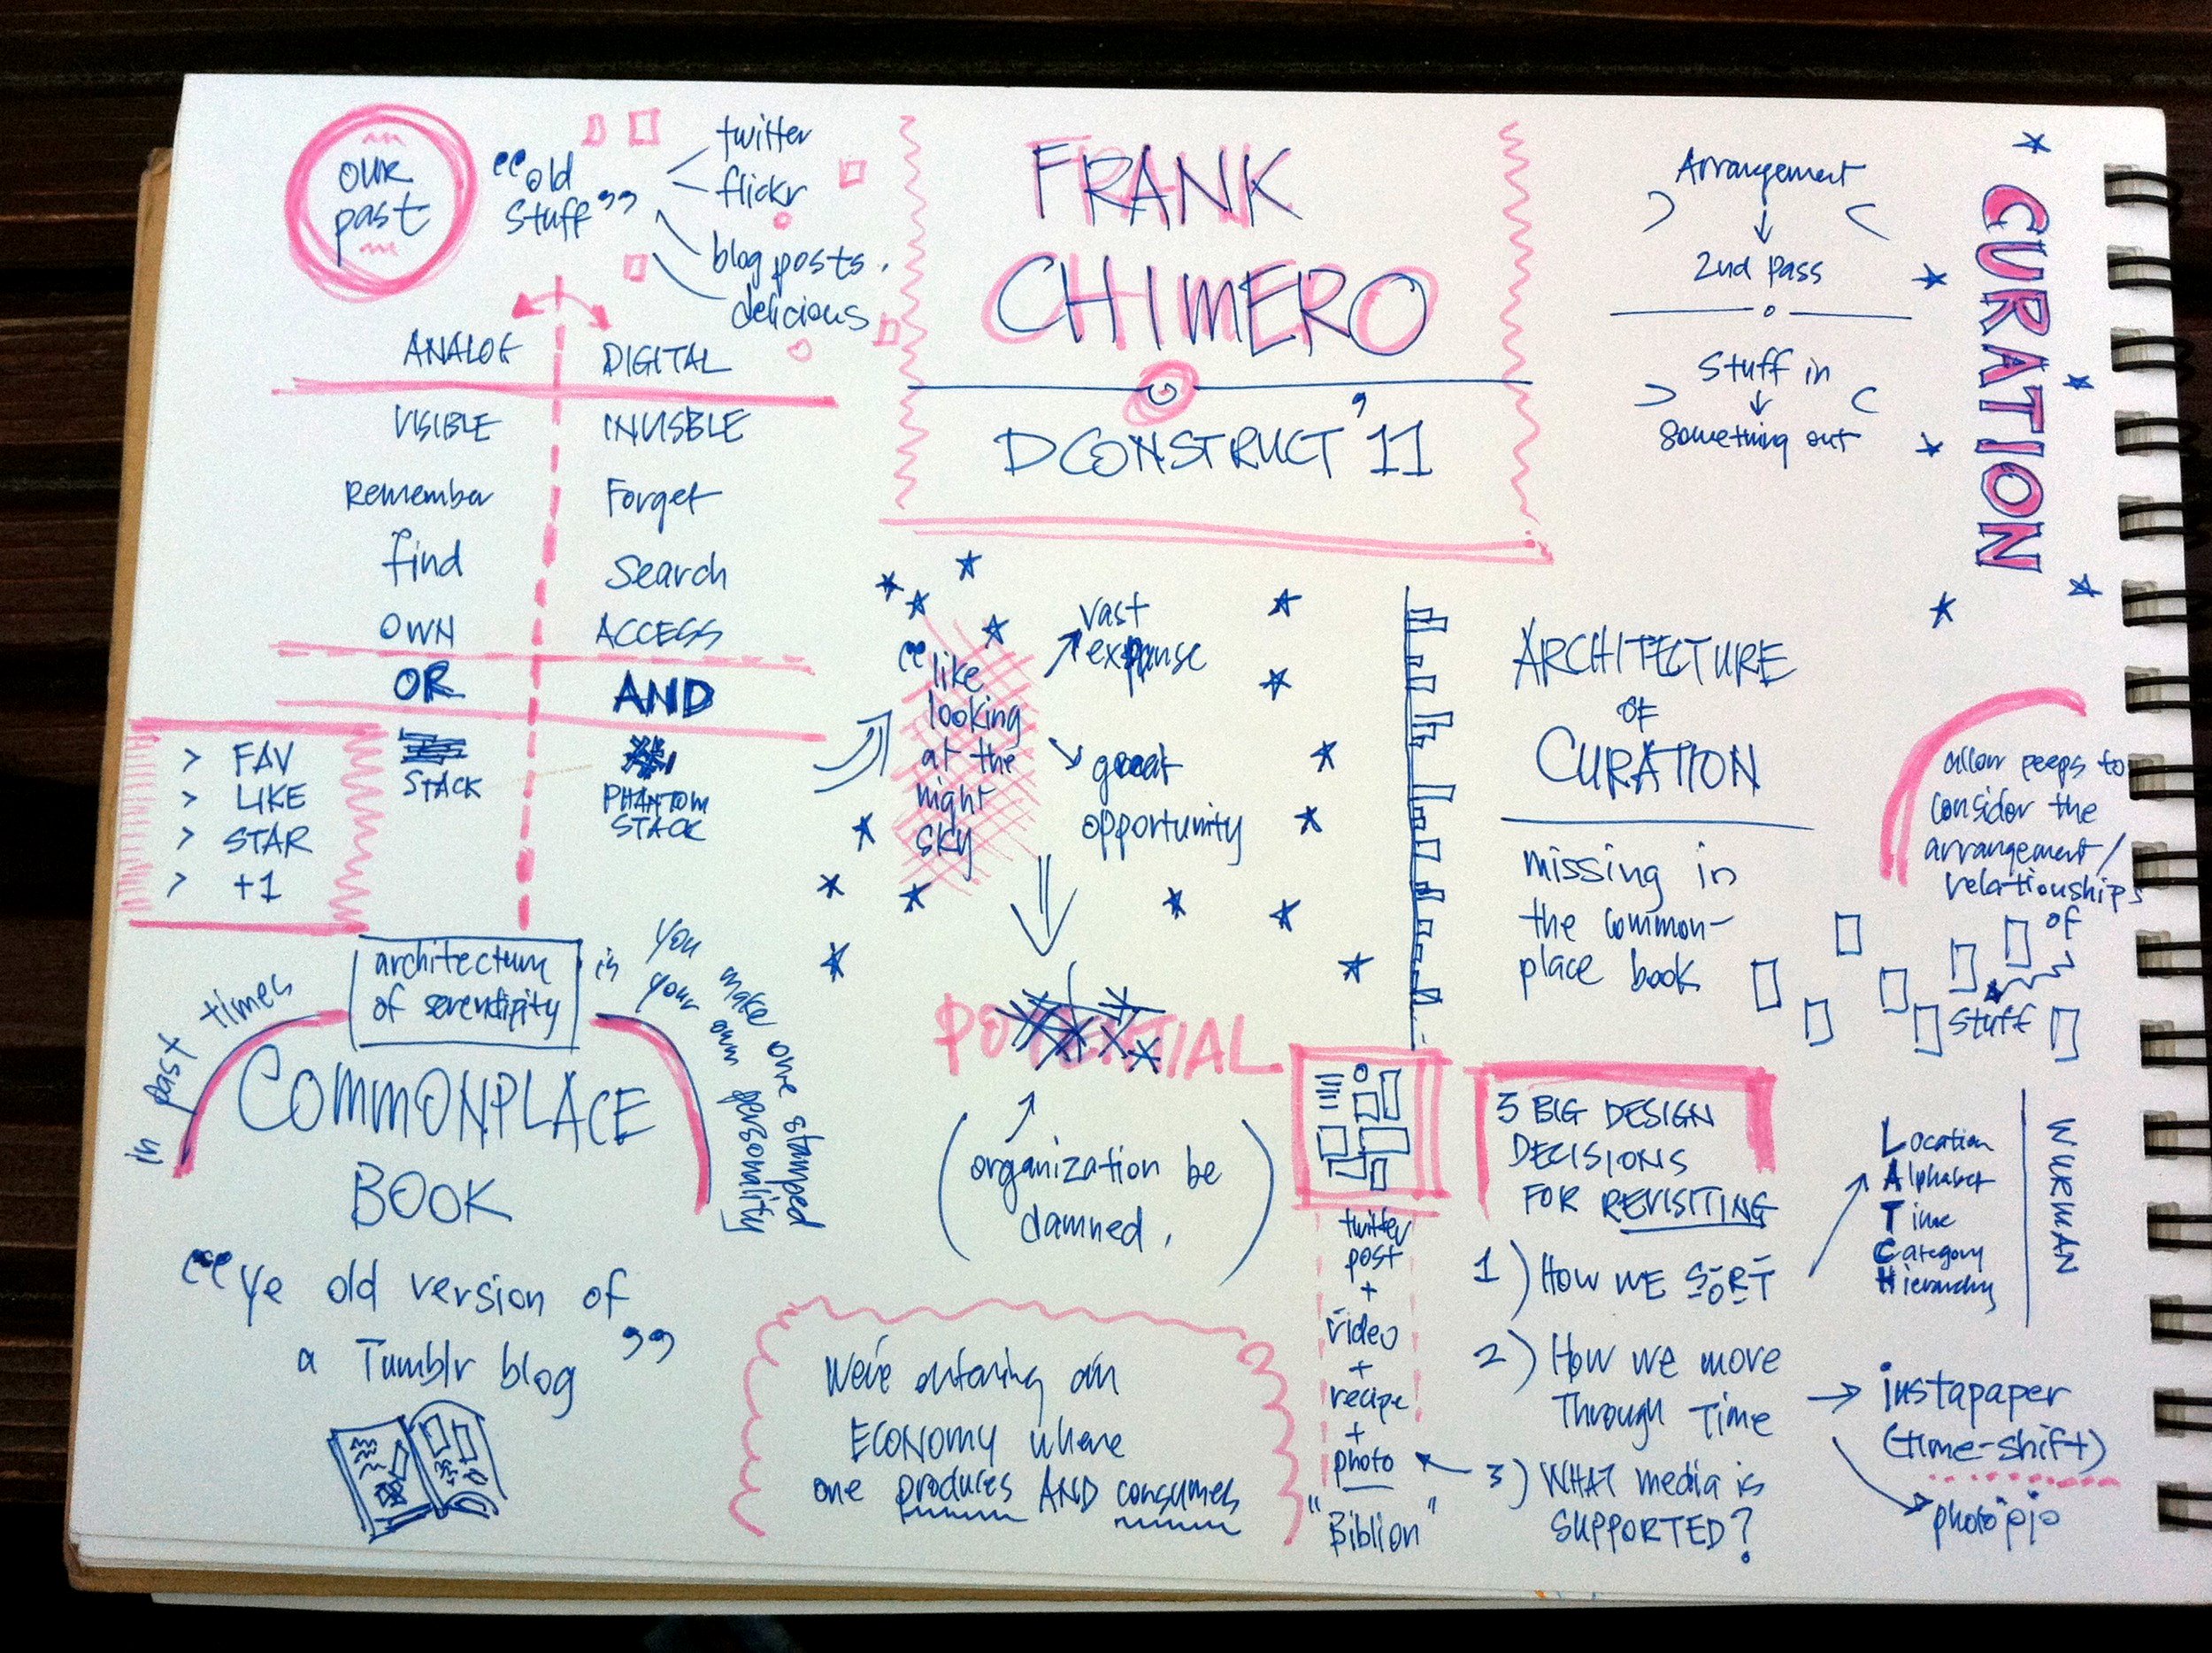 our
past
“old
stuff”
twitter
flickr
blog posts.
delicious
ANALOG DIGITAL
VISIBLE INVISBLE
Remember Forget
find Search
OWN ACCESS
OR AND
STACK PHANTOM
STACK
> FAV
> LIKE
> STAR
> +1
in past times
architecture
of serendipity
is you make one stamped
your own personality
COMMONPLACE
BOOK
“Ye old version of
a Tumblr blog”
FRANK
CHIMERO
DCONSTRUCT '11
“like
looking
at the
night
sky
vast
expanse
great
opportunity
POTENTIAL
(organization be
damned.)
We're entering an
ECONOMY where
one produces AND consumes
Arrangement
2nd pass
Stuff in
Something out
CURATION
ARCHITECTURE
OF
CURATION
missing in
the common-
place book
allow peeps to
consider the
arrangement/
relationships
of
Stuff
twitter
post
+
video
+
recipe
+
photo
"Biblion"
3 BIG DESIGN
DECISIONS
FOR REVISITING
1) HOW WE SORT
2) HOW WE move
Through Time
3) WHAT media is
SUPPORTED?
Location
Alphabet
Time
Category
Hierarchy
WURMAN
instapaper
(time-shift)
photojojo